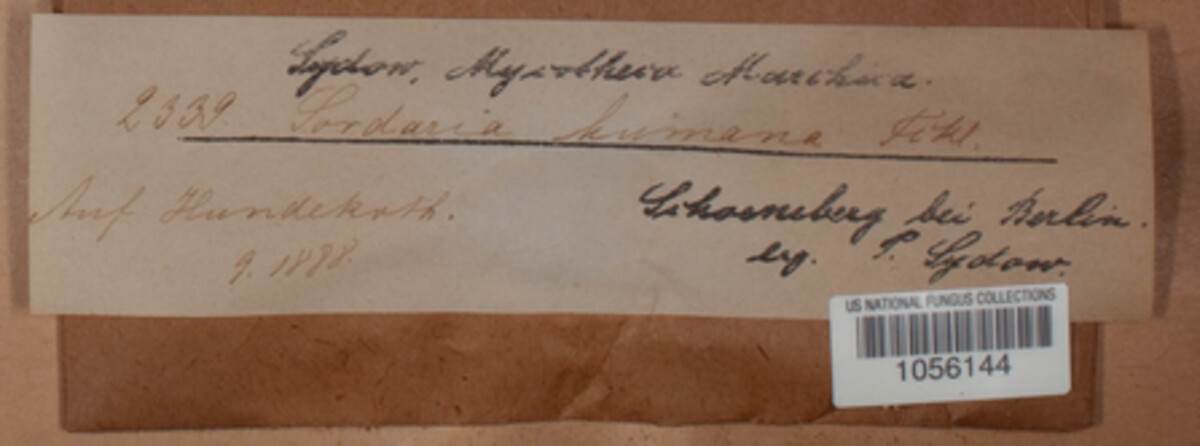 Sydow, Mycotheca Marchica.
2339 Sordaria humana Fckl.
Auf Hundekoth.
9. 1888.
Schoeneberg bei Berlin.
leg. P. Sydow.
US NATIONAL FUNGUS COLLECTIONS
1056144